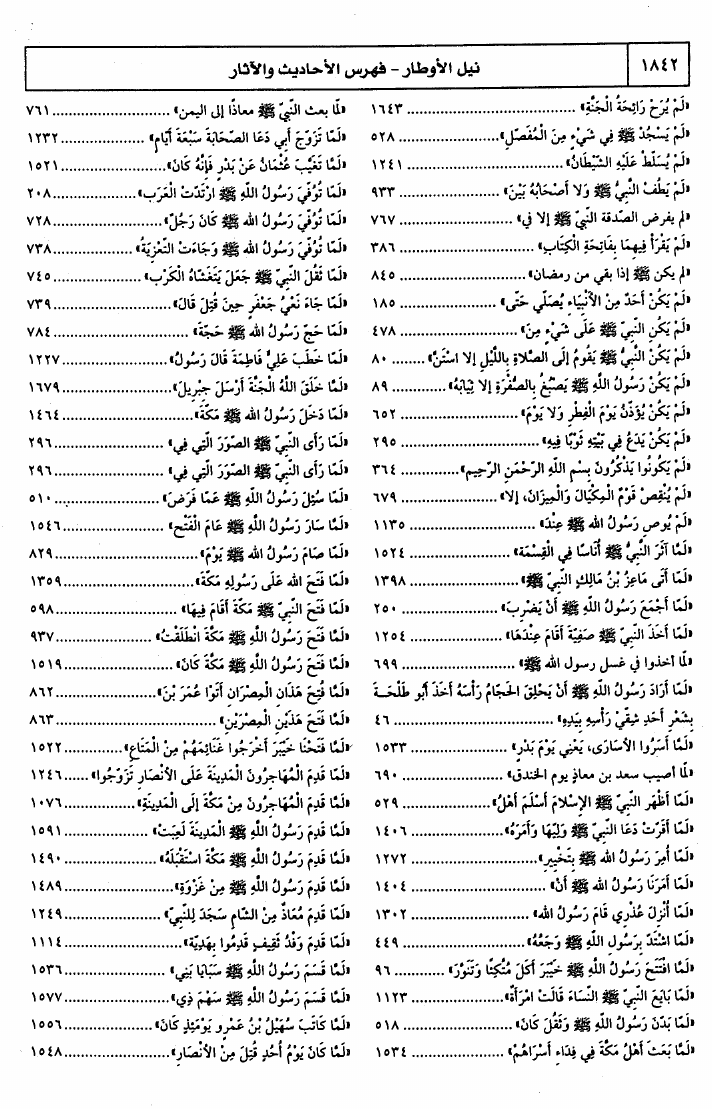 ١٨٤٢
نيل الأوطار - فهرس الأحاديث والآثار
«لَمْ يُرَحْ رَائِحَةَ الْجَنَّةِ» ١٦٤٣
«لَمْ يَسْجُدْ ﷺ فِي شَيْءٍ مِنَ الْمُفَصَّلِ» ٥٢٨
«لَمْ يُسَلَّطْ عَلَيْهِ الشَّيْطَانُ» ١٢٤١
«لَمْ يَطُفِ النَّبِيُّ ﷺ وَلَا أَصْحَابُهُ بَيْنَ» ٩٣٣
«لم يفرض الصدقة النبيّ ﷺ إلا في» ٧٦٧
«لَمْ يَقْرَأْ فِيهِمَا بِفَاتِحَةِ الْكِتَابِ» ٣٨٦
«لم يكن ﷺ إذا بقي من رمضان» ٨٤٥
«لَمْ يَكُنْ أَحَدٌ مِنَ الْأَنْبِيَاءِ يُصَلِّي حَتَّى» ١٨٥
«لَمْ يَكُنِ النَّبِيّ ﷺ عَلَى شَيْءٍ مِنَ» ٤٧٨
«لَمْ يَكُنِ النَّبِيُّ ﷺ يَقُومُ إِلَى الصَّلاةِ بِاللَّيْلِ إِلا اسْتَنَّ» ٨٠
«لَمْ يَكُنْ رَسُولُ اللهِ ﷺ يَصْبُغُ بِالصُّفْرَةِ إِلا ثِيَابَهُ» ٨٩
«لَمْ يَكُنْ يُؤَذَّنُ يَوْمَ الْفِطْرِ وَلا يَوْمَ» ٦٥٢
«لَمْ يَكُنْ يَدَعُ فِي بَيْتِهِ ثَوْبًا فِيهِ» ٢٩٥
«لَمْ يَكُونُوا يَذْكُرُونَ بِسْمِ اللهِ الرَّحْمَنِ الرَّحِيمِ» ٣٦٤
«لَمْ يُنْقِصْ قَوْمٌ الْمِكْيَالَ وَالْمِيزَانَ، إلا» ٦٧٩
«لَمْ يُوصِ رَسُولُ الله ﷺ عِنْدَ» ١١٣٥
«لَمَّا آثَرَ النَّبِيُّ ﷺ أُنَاسًا فِي الْقِسْمَةِ» ١٥٢٤
«لَمَّا أَتَى مَاعِزُ بْنُ مَالِكٍ النَّبِيَّ ﷺ» ١٣٩٨
«لَمَّا أَجْمَعَ رَسُولُ اللَّهِ ﷺ أَنْ يَضْرِبَ» ٢٥٠
«لَمَّا أَخَذَ النَّبِيُّ ﷺ صَفِيَّةَ أَقَامَ عِنْدَهَا» ١٢٥٤
«لما أخذوا في غسل رسول الله ﷺ» ٦٩٩
«لَمَّا أَرَادَ رَسُولُ اللهِ ﷺ أَنْ يَحْلِقَ الحَجَّامُ رَأْسَهُ أَخَذَ أَبُو طَلْحَةَ
بِشَعْرِ أَحَدِ شِقَّيْ رَأْسِهِ بِيَدِهِ» ٤٦
«لَمَّا أَسَرُوا الأسَارَى، يَعْنِي يَوْمَ بَدْرٍ» ١٥٣٣
«لما أصيب سعد بن معاذ يوم الخندق» ٦٩٠
«لَمَّا أَظْهَرَ النَّبِيّ ﷺ الإِسْلَامَ أَسْلَمَ أَهْلُ» ٥٢٩
«لَمَّا أَقَرَّتْ دَعَا النَّبِيّ ﷺ وَلِيَّهَا وَأَمَرَهُ» ١٤٠٦
«لَمَّا أُمِرَ رَسُولُ الله ﷺ بِتَخْيِيرِ» ١٢٧٢
«لَمَّا أَمَرَنَا رَسُولُ الله ﷺ أَنْ» ١٤٠٤
«لَمَّا أُنْزِلَ عُذْرِي قَامَ رَسُولُ الله» ١٣٠٢
«لَمَّا اشْتَدَّ بِرَسُولِ اللهِ ﷺ وَجَعُهُ» ٤٤٩
«لَمَّا افْتَتَحَ رَسُولُ اللهِ ﷺ خَيْبَرَ أَكَلَ مُتَّكِئًا وَتَنَوَّرَ» ٩٦
«لَمَّا بَايَعَ النَّبِيّ ﷺ النِّسَاءَ قَالَتْ امْرَأَةٌ» ١١٢٣
«لَمَّا بَدَّنَ رَسُولُ اللَّهِ ﷺ وَثَقُلَ كَانَ» ٥١٨
«لَمَّا بَعَثَ أَهْلُ مَكَّةَ فِي فِدَاءِ أَسْرَاهُمْ» ١٥٣٤
«لما بعث النّبيّ ﷺ معاذًا إلى اليمن» ٧٦١
«لَمَّا تَزَوَّجَ أَبِي دَعَا الصَّحَابَةَ سَبْعَةَ أَيَّامٍ» ١٢٣٢
«لَمَّا تَغَيَّبَ عُثْمَانُ عَنْ بَدْرٍ فَإِنَّهُ كَانَ» ١٥٢١
«لَمَّا تُوُفِّيَ رَسُولُ اللَّهِ ﷺ ارْتَدَّتْ الْعَرَب» ٢٠٨
«لَمَّا تُوُفِّيَ رَسُولُ الله ﷺ كَانَ رَجُلٌ» ٧٢٨
«لَمَّا تُوُفِّيَ رَسُولُ الله ﷺ وَجَاءَتِ التَّعْزِيَةُ» ٧٣٨
«لَمَّا ثَقُلَ النَّبِيّ ﷺ جَعَلَ يَتَغَشَّاهُ الْكَرْب» ٧٤٥
«لَمَّا جَاءَ نَعْيُ جَعْفَرٍ حِينَ قُتِلَ قَالَ» ٧٣٩
«لَمَّا حَجَّ رَسُولُ الله ﷺ حَجَّةَ» ٧٨٤
«لَمَّا خَطَبَ عَلِيٌّ فَاطِمَةَ قَالَ رَسُولُ» ١٢٢٧
«لَمَّا خَلَقَ اللَّهُ الْجَنَّةَ أَرْسَلَ جِبْرِيلَ» ١٦٧٩
«لَمَّا دَخَلَ رَسُولُ الله ﷺ مَكَّةَ» ١٤٦٤
«لَمَّا رَأَى النَّبِيّ ﷺ الصّوَرَ الَّتِي فِي» ٢٩٦
«لَمَّا رَأَى النَّبِيّ ﷺ الصّوَرَ الَّتِي فِي» ٢٩٦
«لَمَّا سُئِلَ رَسُولُ اللَّهِ ﷺ عَمَّا فَرَضَ» ٥١٠
«لَمَّا سَارَ رَسُولُ اللَّهِ ﷺ عَامَ الْفَتْحِ» ١٥٤٦
«لَمَّا صَامَ رَسُولُ الله ﷺ يَوْمَ» ٨٢٩
«لَمَّا فَتَحَ الله عَلَى رَسُولِهِ مَكَّةَ» ١٣٥٩
«لَمَّا فَتَحَ النَّبِيّ ﷺ مَكَّةَ أَقَامَ فِيهَا» ٥٩٨
«لَمَّا فَتَحَ رَسُولُ اللَّهِ ﷺ مَكَّةَ انْطَلَقْتُ» ٩٣٧
«لَمَّا فَتَحَ رَسُولُ اللَّهِ ﷺ مَكَّةَ كَانَ» ١٥١٩
«لَمَّا فُتِحَ هَذَانِ المِصْرَانِ أَتَوْا عُمَرَ بْنَ» ٨٦٢
«لَمَّا فَتَحَ هَذَيْنِ الْمِصْرَيْنِ» ٨٦٣
«لَمَّا فَتَحْنَا خَيْبَرَ أَخْرَجُوا غَنَائِمَهُمْ مِنْ الْمَتَاعِ» ١٥٢٢
«لَمَّا قَدِمَ الْمُهَاجِرُونَ الْمَدِينَةَ عَلَى الأنْصَارِ تَزَوَّجُوا» ١٢٤٦
«لَمَّا قَدِمَ الْمُهَاجِرُونَ مِنْ مَكَّةَ إِلَى الْمَدِينَةِ» ١٠٧٦
«لَمَّا قَدِمَ رَسُولُ اللَّهِ ﷺ الْمَدِينَةَ لَعِبَتْ» ١٥٩١
«لَمَّا قَدِمَ رَسُولُ اللَّهِ ﷺ مَكَّةَ اسْتَقْبَلَهُ» ١٤٩٠
«لَمَّا قَدِمَ رَسُولُ اللَّهِ ﷺ مِنْ غَزْوَةِ» ١٤٨٩
«لَمَّا قَدِمَ مُعَاذٌ مِنْ الشَّامِ سَجَدَ لِلنَّبِيِّ» ١٢٤٩
«لَمَّا قَدِمَ وَفْدُ ثَقِيفٍ قَدِمُوا بِهَدِيَّةٍ» ١١١٤
«لَمَّا قَسَمَ رَسُولُ اللَّهِ ﷺ سَبَايَا بَنِي» ١٥٣٦
«لَمَّا قَسَمَ رَسُولُ اللَّهِ ﷺ سَهْمَ ذِي» ١٥٧٧
«لَمَّا كَاتَبَ سُهَيْلُ بْنُ عَمْرٍو يَوْمَئِذٍ كَانَ» ١٥٥٦
«لَمَّا كَانَ يَوْمُ أُحُدٍ قُتِلَ مِنْ الأَنْصَارِ» ١٥٤٨